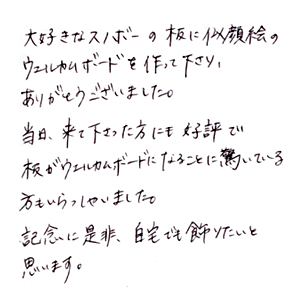 大好きなスノボーの板に似顔絵の
ウェルカムボードを作って下さり、
ありがとうございました。
当日、来て下さった方にも好評で
板がウェルカムボードになることに驚いている
方もいらっしゃいました。
記念に是非、自宅でも飾りたいと
思います。